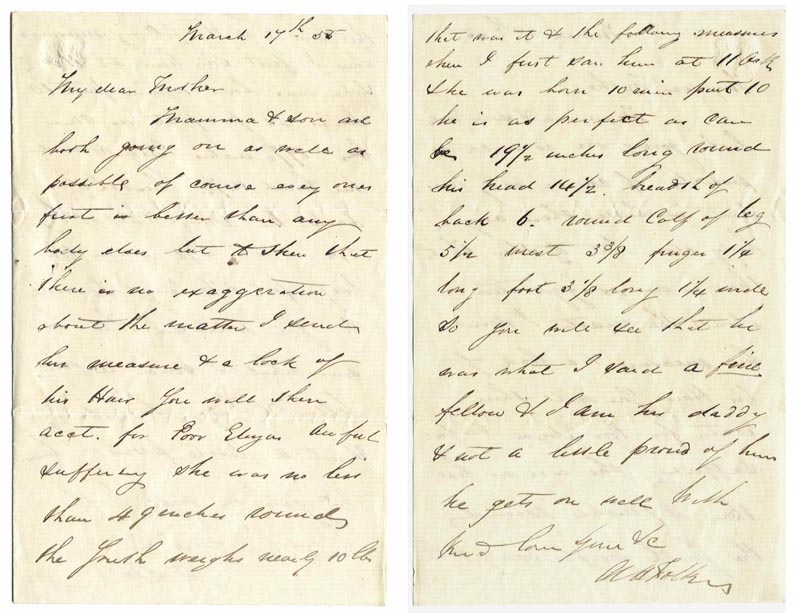 March 17th 56
My dear Mother
Mamma & son are
both going on as well as
possible of course every ones
first is better than any
body elses but to shew that
there is no exaggeration
about the matter I send
his measure & a lock of
his Hair You will then
acct. for Poor Elizas awful
suffering She was no less
than 49 inches round
the Youth weighs nearly 10 lbs
that was it & the following measures
when I first saw him at 11 Oclk
& he was born 10 min past 10
he is as perfect as can
be 19 1/2 inches long round
his head 14 1/2. breadth of
back 6. round Calf of leg
5 1/2 wrist 3 3/8 finger 1 1/4
long foot 3 1/8 long 1 1/4 wide
So you will see that he
was what I said a fine
fellow & I am his daddy
& not a little proud of him
he gets on well With
kind love Your &c